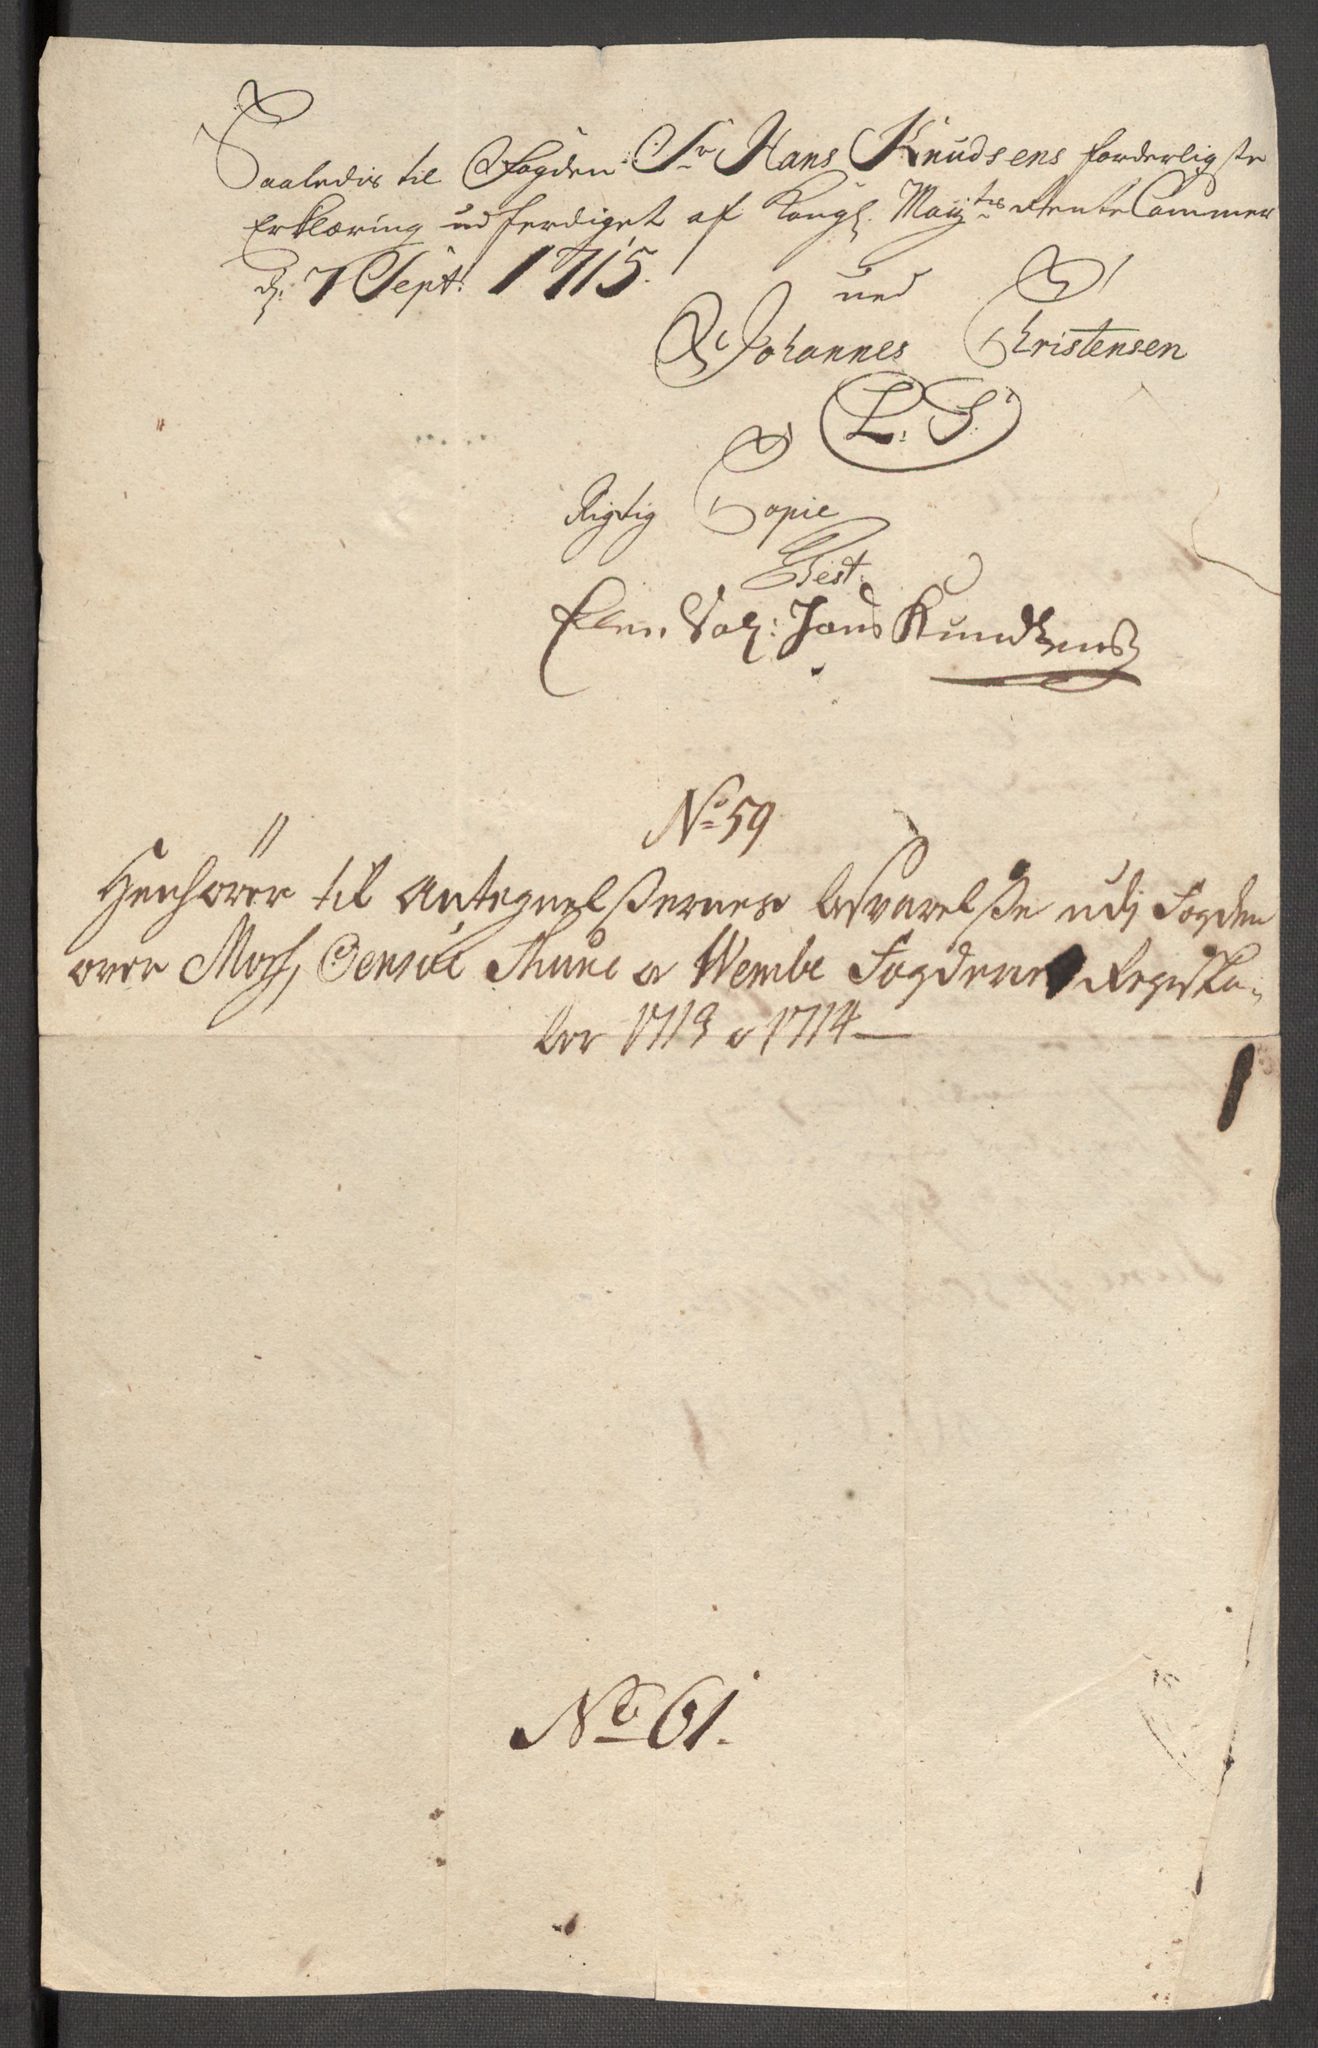 Saaledis til Fogden Sr Hans Knudsens forderligste
Erklæring udferdiget af Kongl. Mayts Rente Cammer
d. 7 Sept: 1715.
ved
Johannes Christensen
L. S.
Rigtig Copie
Test.
Elen Sal: Hans Knudsens
No 59
Henhører til Antegnelssernes besvarelsse udj Fogden
over Moss, Thune o Wembe Fogderies Regnska-
ber 1713 o 1714
No 61.